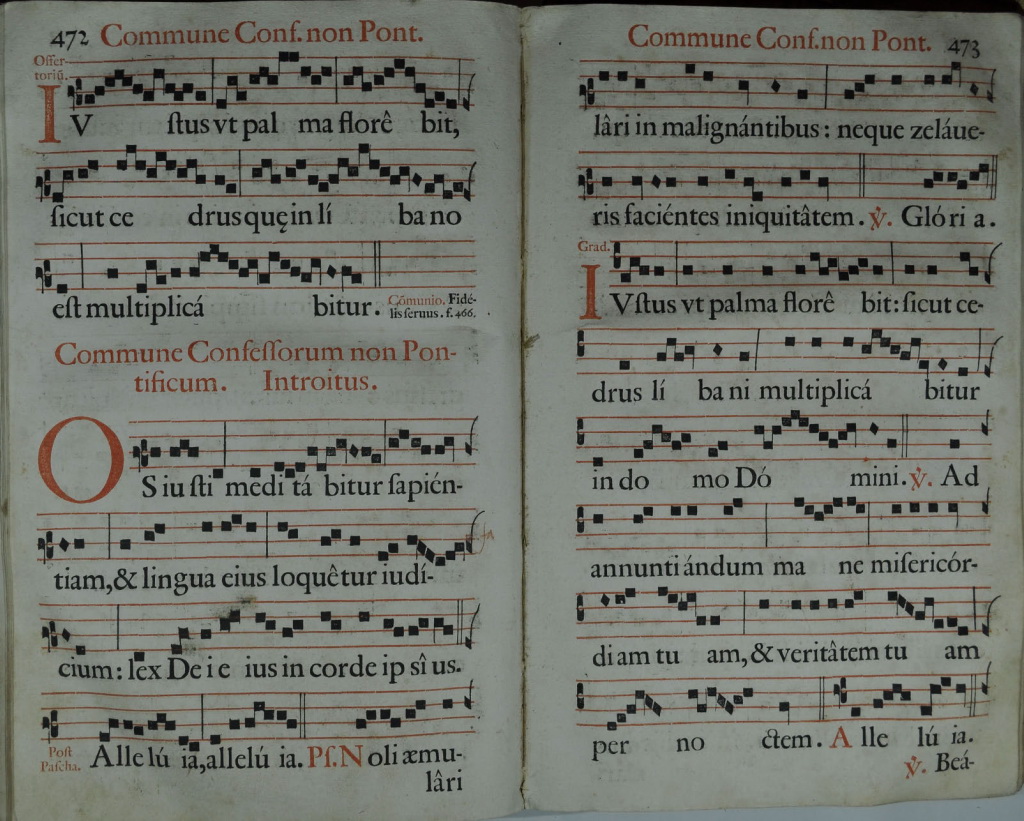 472 Commune Conf. non Pont.
Offer-
toriū.
IVſtus vt pal ma florê bit,
ſicut ce drus quę in lí ba no
eſt multiplicá bitur. Cõmunio. Fidé-
lis ſeruus. f. 466.
Commune Confeſſorum non Pon-
tificum. Introitus.
OS iu ſti medi tá bitur ſapién-
tiam, & lingua eius loquêtur iudí-
cium: lex De i e ius in corde ip sî us.
Poſt
Paſcha. Alle lú ia, allelú ia. Pſ. N oli æmu-
lâri
Commune Conf. non Pont. 473
lâri in malignántibus: neque zeláue-
ris faciéntes iniquitâtem. ℣. Glóri a.
Grad.
IVſtus vt palma florê bit: ſicut ce-
drus lí ba ni multiplicá bitur
in do mo Dó mini. ℣. Ad
annunti ándum ma ne miſericór-
di am tu am, & veritâtem tu am
per no ctem. A lle lú ia.
℣. Beá-